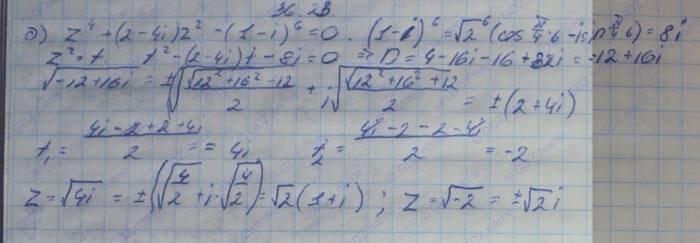 36.28
д) z⁴ + (2 - 4i)z² - (1 - i)⁶ = 0. (1-i)⁶ = √2⁶ (cos π/4·6 - i sin π/4·6) = 8i
z² = t t² - (2 - 4i)t - 8i = 0 ⇒ D = 4 - 16i - 16 + 32i = -12 + 16i
√-12+16i = ±(√(√12²+16² - 12)/2 + i√(√12²+16² + 12)/2 = ±(2+4i)
t₁ = (4i - 2 + 2 + 4i)/2 = = 4i t₂ = (4i - 2 - 2 - 4i)/2 = -2
z = √4i = ±(√4/2 + i·√4/2) = √2(1+i) ; z = √-2 = ±√2 i